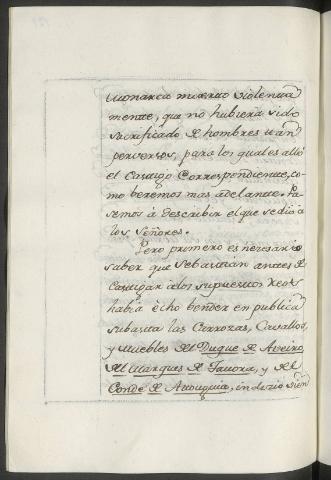 Monarca muerto violenta
mente, que no hubiera sido
sacrificado de hombres tan
perversos, para los quales alló
el Castigo Correspondiente, co-
mo beremos mas adelante. Pa
semos á describir el que se dió á
los Señores.
Pero primero es nesesario
saber que Sebastian antes de
Castigar á los supuestos Reos
habia echo bender en publica
subasta las Carrozas, Caballos,
y Muebles del Duque de Aveiro,
del Marques de Tavora, y del
Conde de Atouguia, indicio